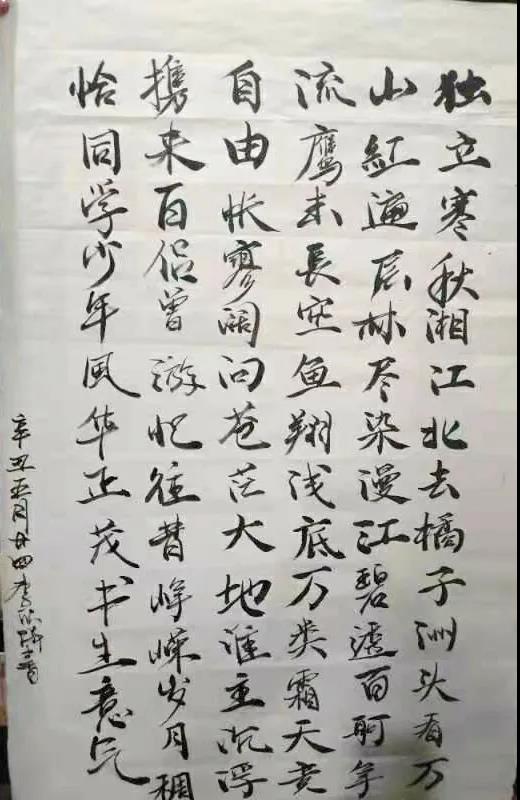 独立寒秋湘江北去橘子洲头看万
山紅遍层林尽染漫江碧透百舸争
流鹰击長空鱼翔浅底万类霜天竞
自由怅寥阔问苍茫大地谁主沉浮
携来百侣曾游忆往昔峥嵘岁月稠
恰同学少年風华正茂书生意气
辛丑五月廿四李